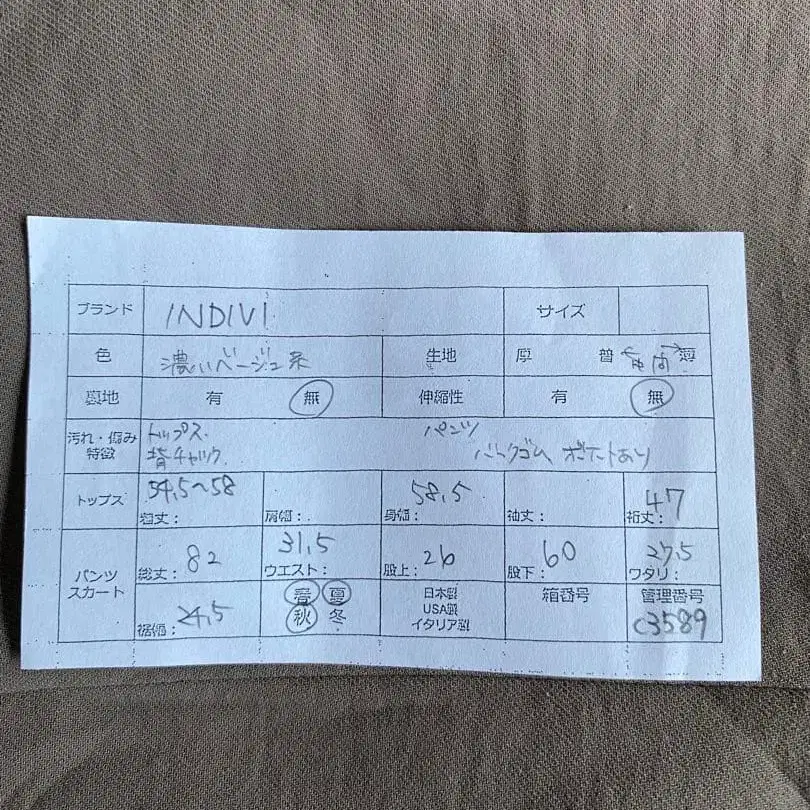 ブランド INDIVI サイズ
色 濃いベージュ系 生地 厚 普 ←中間→ 薄
裏地 有 無 伸縮性 有 無
汚れ・傷み トップス. パンツ
特徴 背チャック. バックゴム ポケットあり
トップス 54,5〜58 58,5 47
着丈: 肩幅: 身幅: 袖丈: 裄丈:
パンツ 82 31,5 26 60 27,5
スカート 総丈: ウエスト: 股上: 股下: ワタリ:
24,5 春 夏 日本製 箱番号 管理番号
裾幅: 秋 冬 USA製 C3589
イタリア製